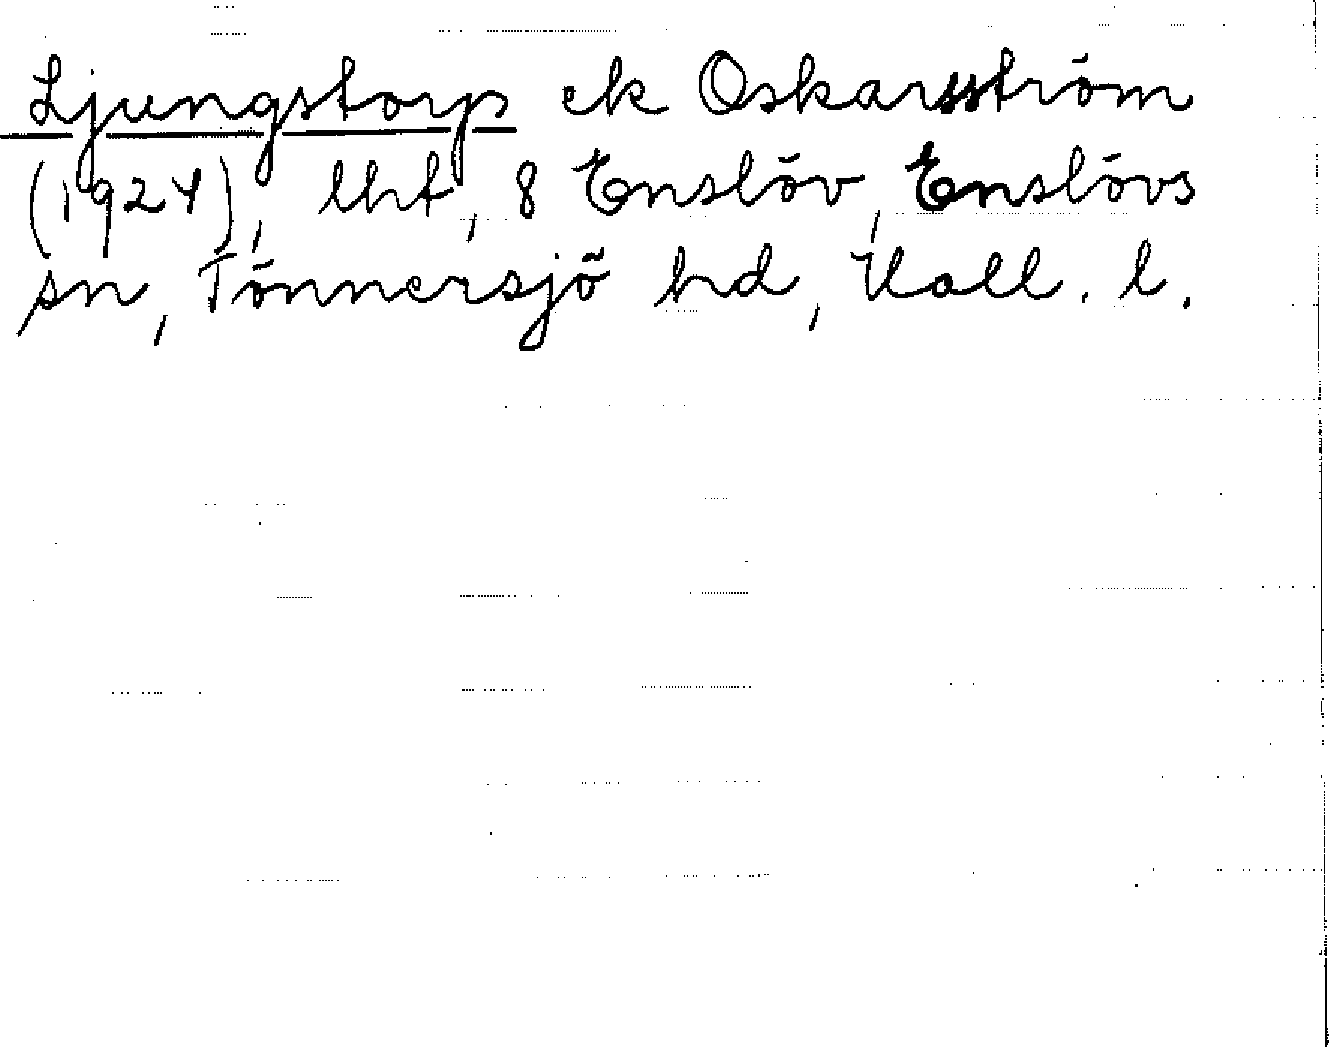 Ljungstorp ek Oskarsström
(1924), lht, 8 Enslöv, Enslövs
sn, Tönnersjö hd, Hall. l.